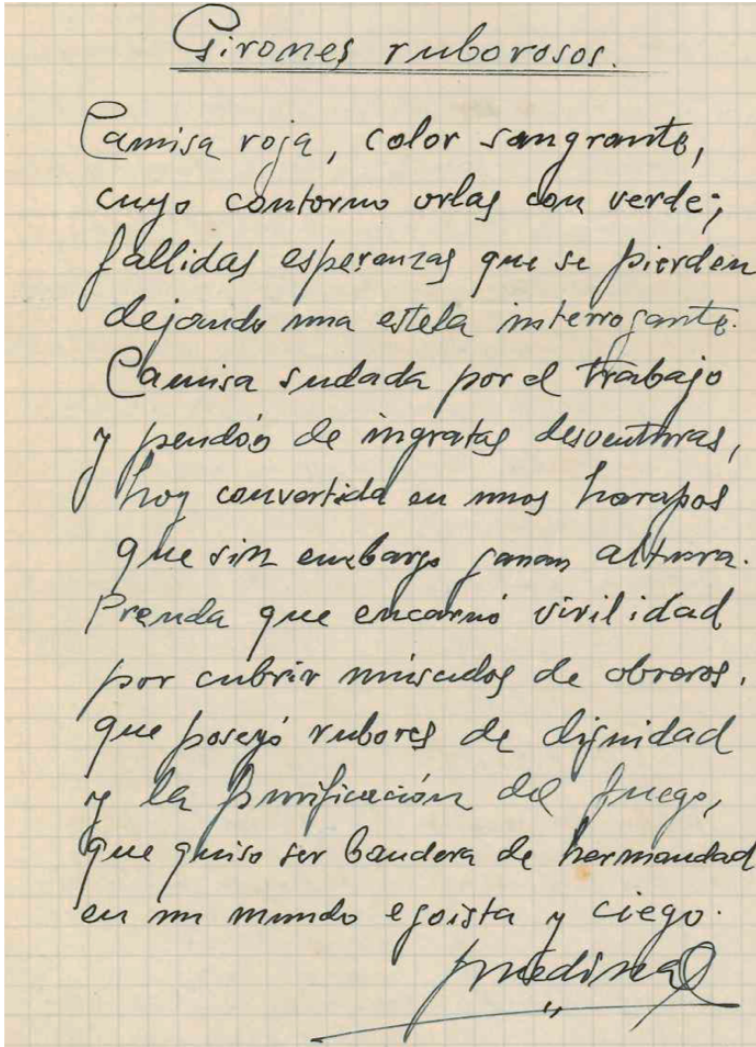 Girones ruborosos.
Camisa roja, color sangrante,
cuyo contorno orlas con verde;
fallidas esperanzas que se pierden
dejando una estela interrogante.
Camisa sudada por el trabajo
y pendón de ingratas desventuras,
hoy convertida en unos harapos
que sin embargo ganan altura.
Prenda que encarnó virilidad
por cubrir músculos de obreros,
que poseyó rubores de dignidad
y la purificación del fuego,
que quiso ser bandera de hermandad
en un mundo egoista y ciego.